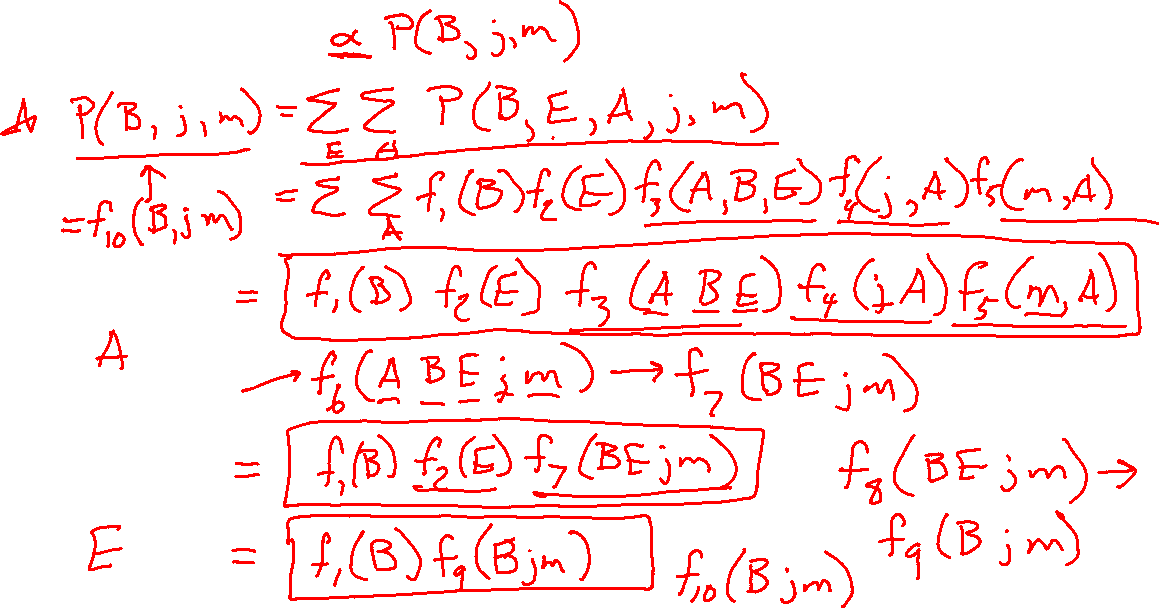 ∝ P(B, j, m)
A P(B, j, m) = Σ_E Σ_A P(B, E, A, j, m)
= f₁₀(B, j m) = Σ Σ_A f₁(B) f₂(E) f₃(A, B, E) f₄(j, A) f₅(m, A)
= f₁(B) f₂(E) f₃(A B E) f₄(j A) f₅(m, A)
A
→ f₆(A B E j m) → f₇(B E j m)
= f₁(B) f₂(E) f₇(B E j m) f₈(B E j m) →
f₉(B j m)
E = f₁(B) f₉(B j m) f₁₀(B j m)